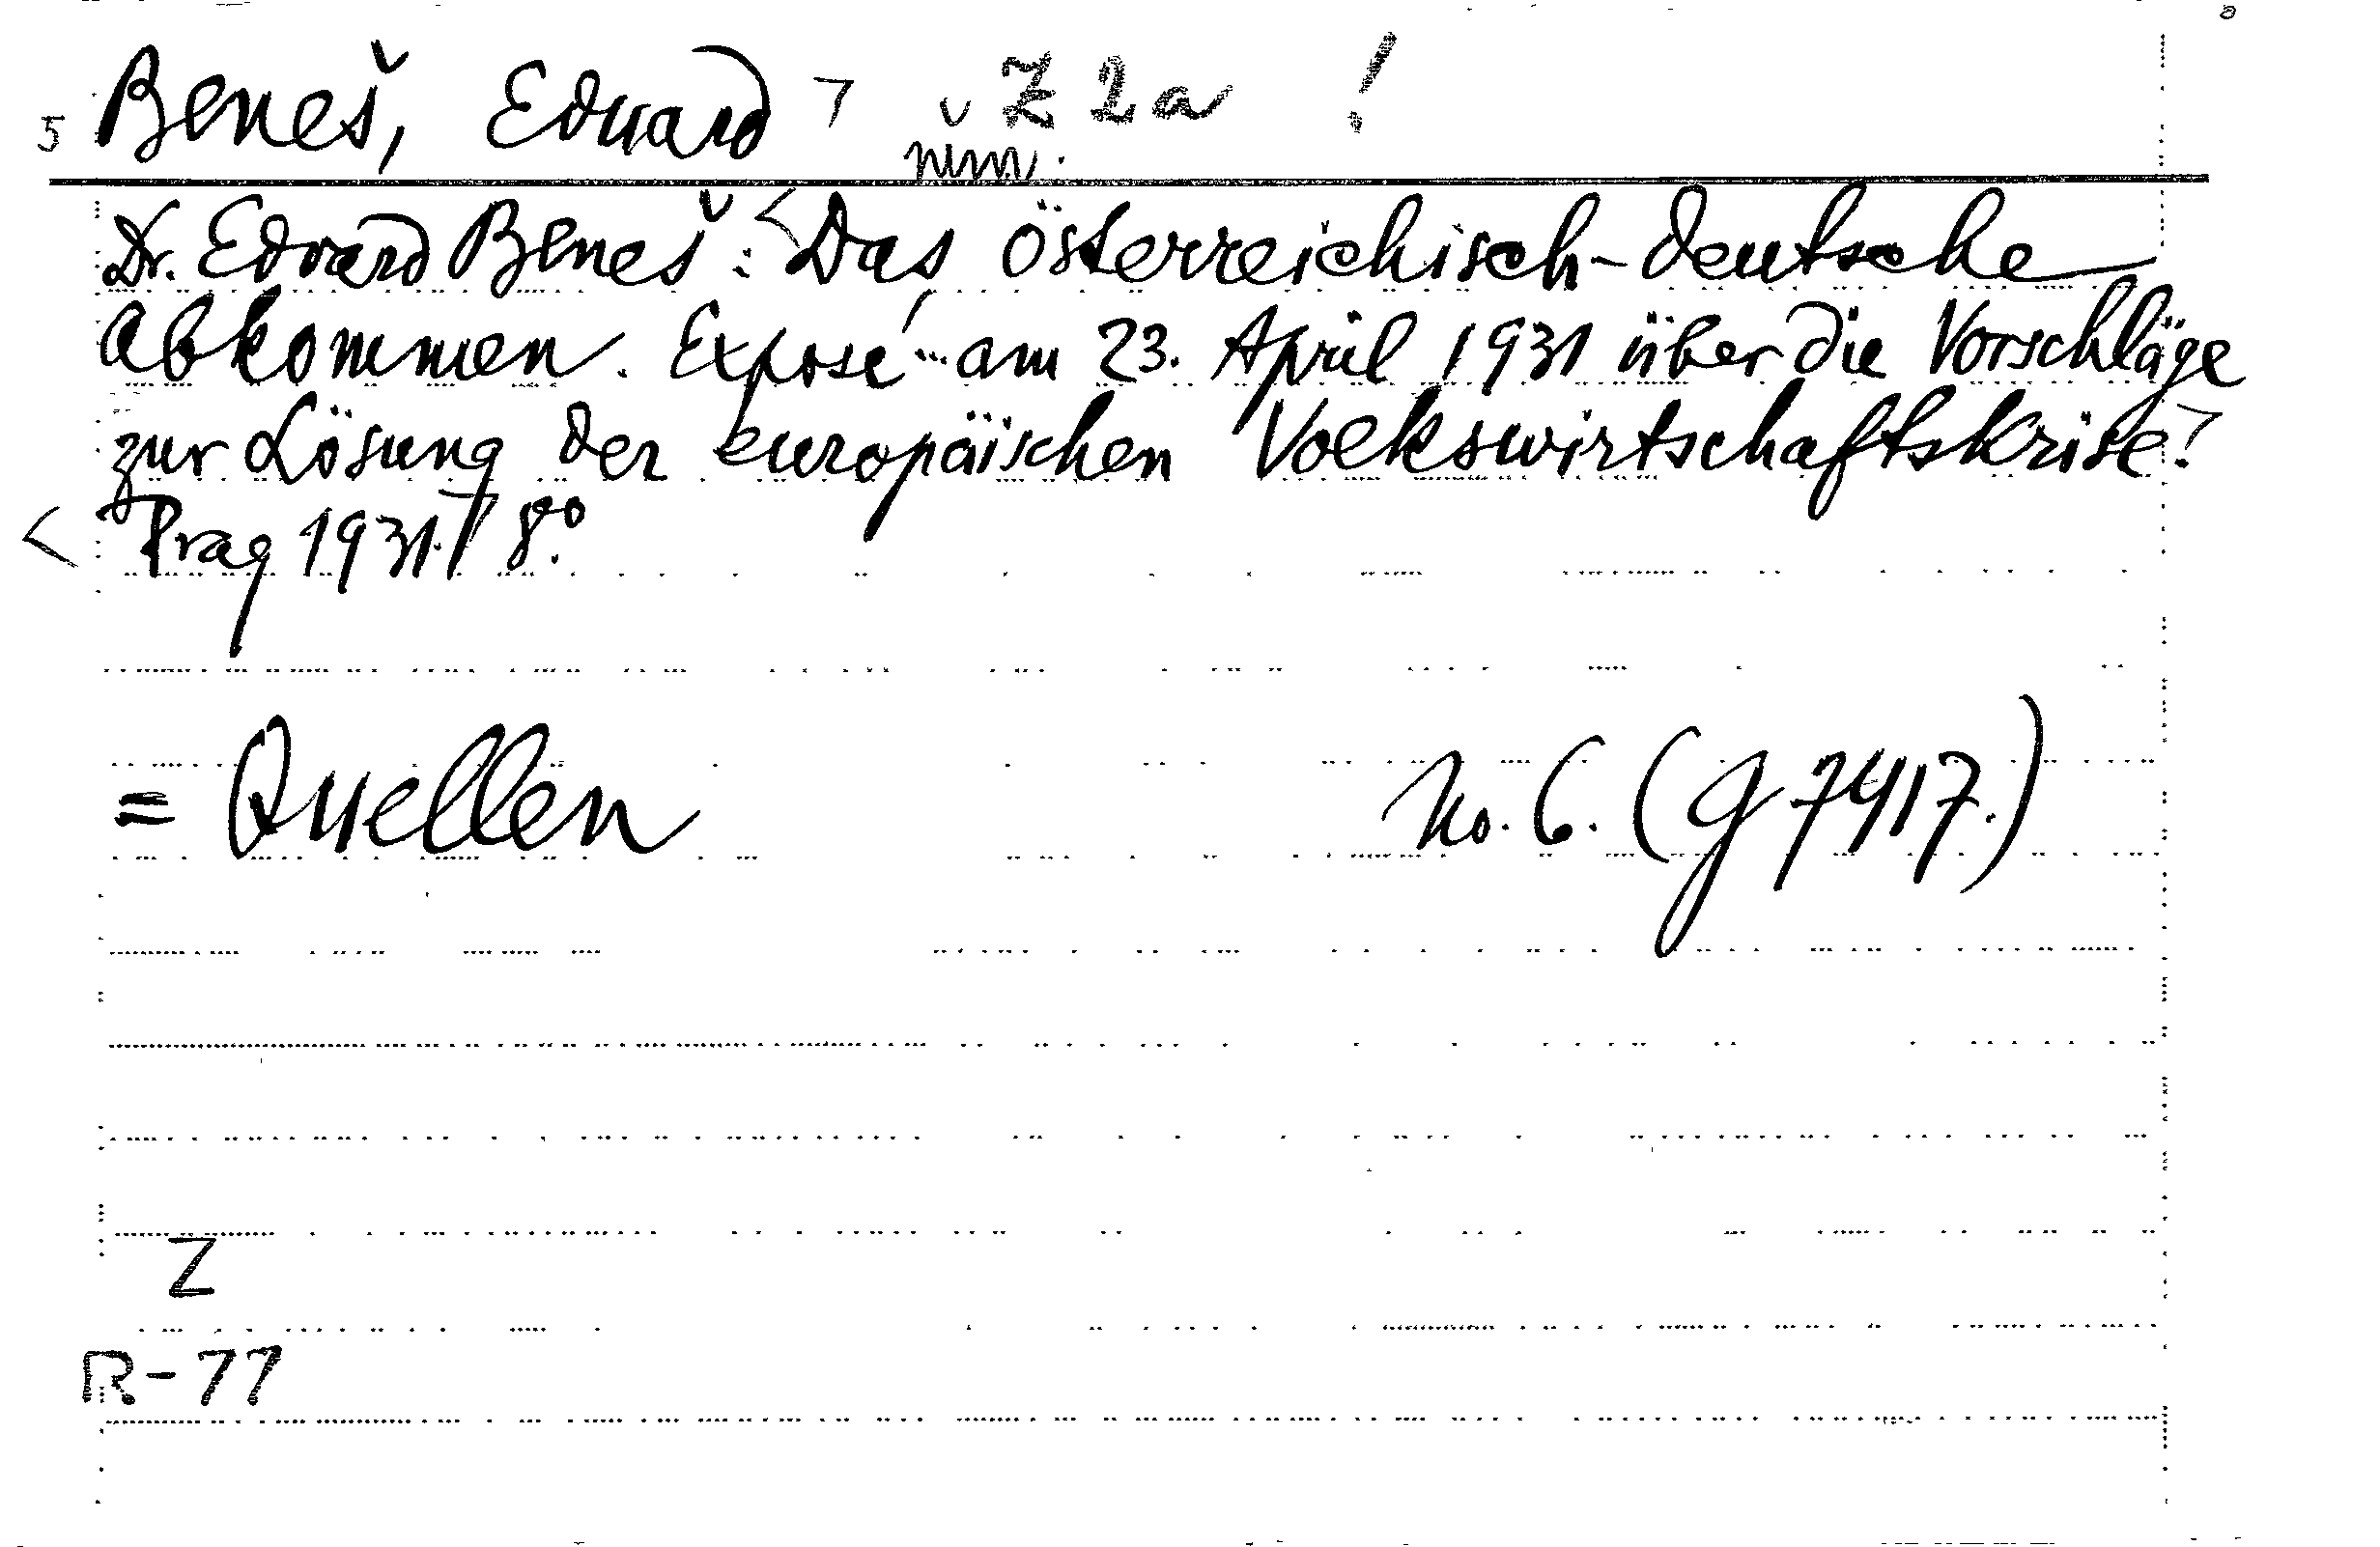 5 Beneš, Eduard > v Z 2a !
něm.
Dr. Edvard Beneš: <Das österreichisch-deutsche
Abkommen. Exposé ... am 23. April 1931 über die Vorschläge
zur Lösung der europäischen Volkswirtschaftskrise.>
< Prag 1931.> 8°.
= Quellen No. 6. (g 7417.)
Z
R-77